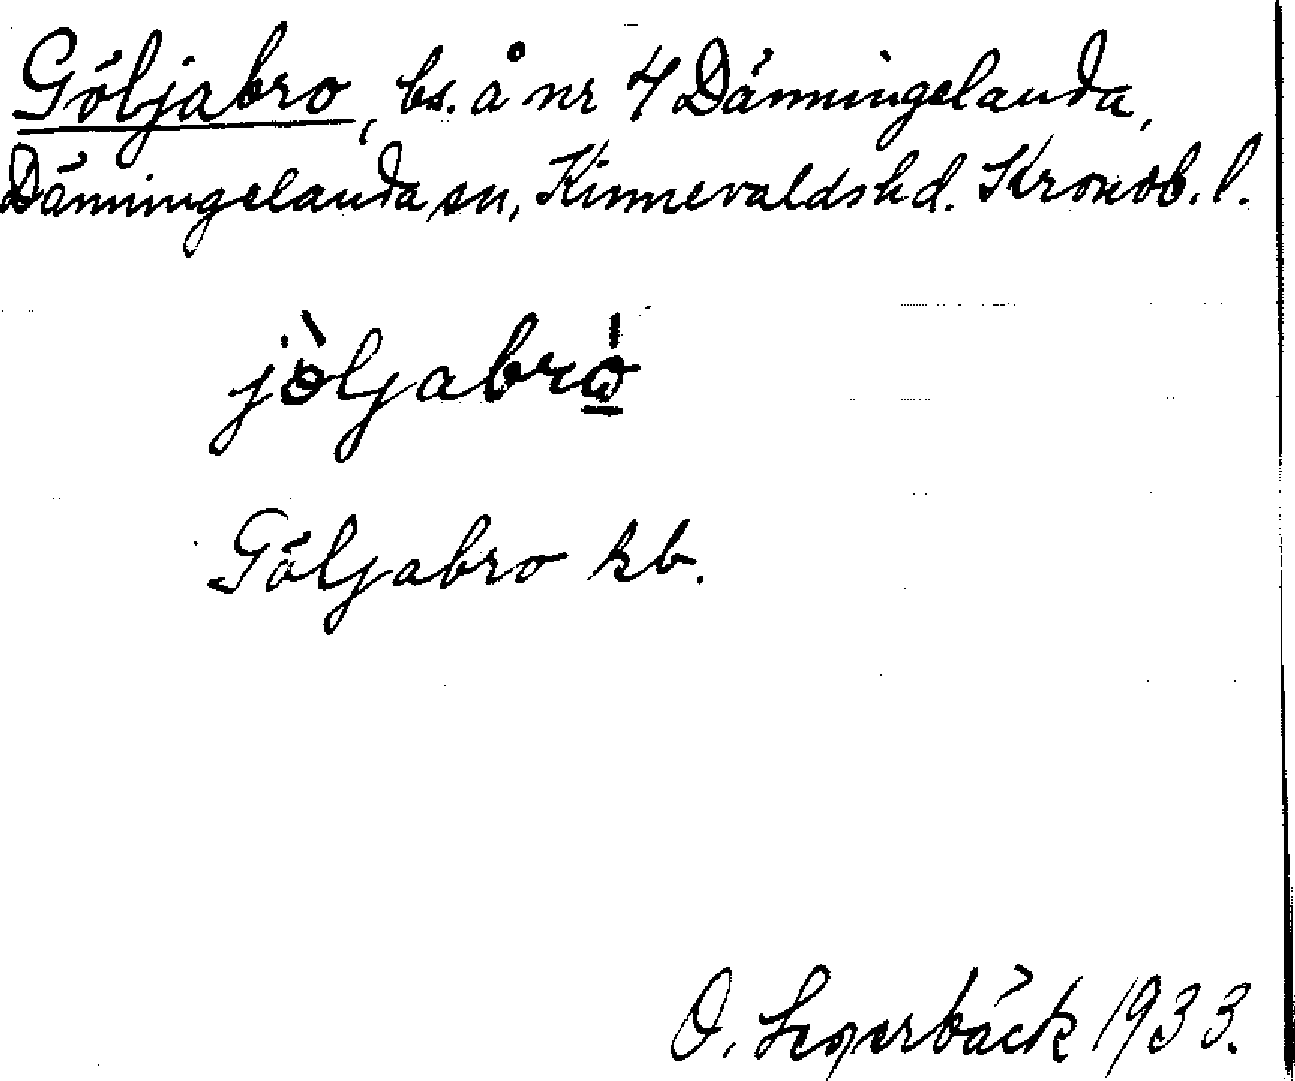 Göljabro, bs. å nr 4 Dänningelanda,
Dänningelanda sn, Kinnevaldshd. Kronob. l.
jöljabrò
Göljabro kb.
O. Segerbäck 1933.